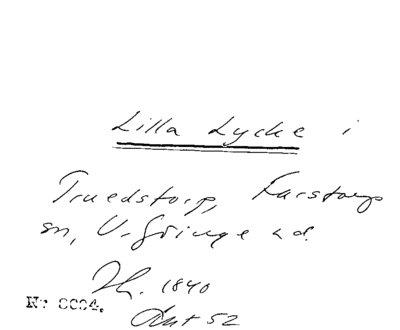 Lilla Lycke i
Truedstorp, Farstorps
sn, V. Göinge hd.
Th. 1840
Ant 52
Nr 0004.